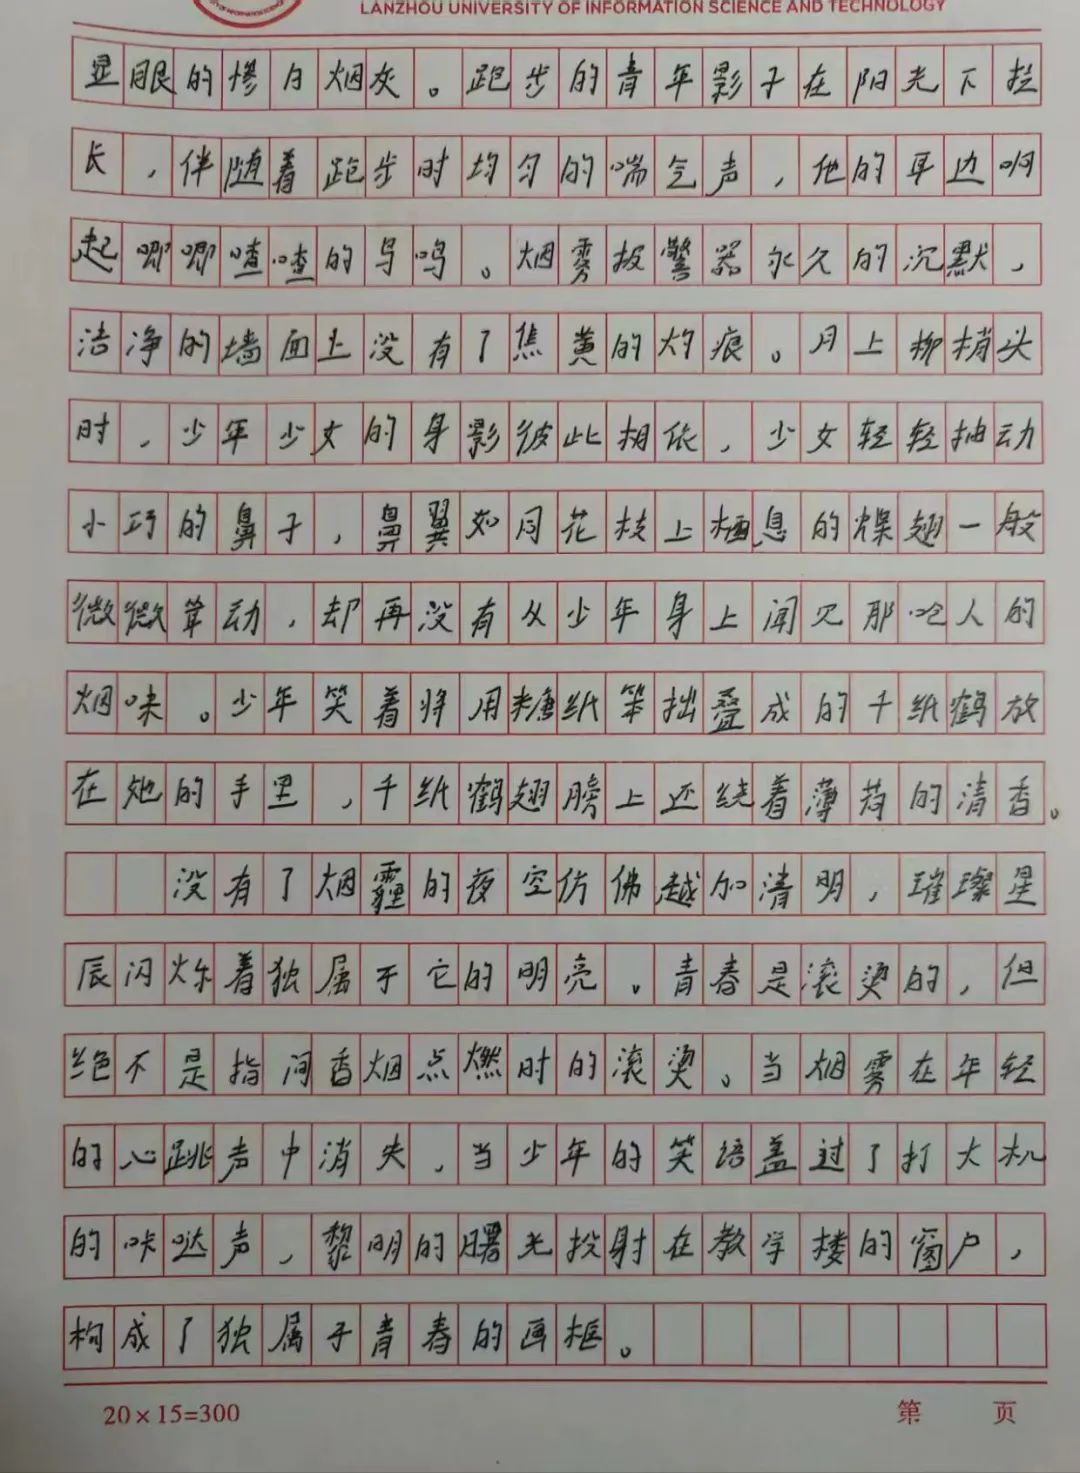 LANZHOU UNIVERSITY OF INFORMATION SCIENCE AND TECHNOLOGY
显眼的惨白烟灰。跑步的青年影子在阳光下拉
长，伴随着跑步时均匀的喘气声，他的耳边响
起唧唧喳喳的鸟鸣。烟雾报警器永久的沉默，
洁净的墙面上没有了焦黄的灼痕。月上柳梢头
时，少年少女的身影彼此相依，少女轻轻抽动
小巧的鼻子，鼻翼如同花枝上栖息的蝶翅一般
微微耸动，却再没有从少年身上闻见那呛人的
烟味。少年笑着将用糖纸笨拙叠成的千纸鹤放
在她的手里，千纸鹤翅膀上还绕着薄荷的清香。
没有了烟霾的夜空仿佛越加清明，璀璨星
辰闪烁着独属于它的明亮。青春是滚烫的，但
绝不是指间香烟点燃时的滚烫。当烟雾在年轻
的心跳声中消失，当少年的笑语盖过了打火机
的咔哒声，黎明的曙光投射在教学楼的窗户，
构成了独属于青春的画框。
20×15=300
第 页